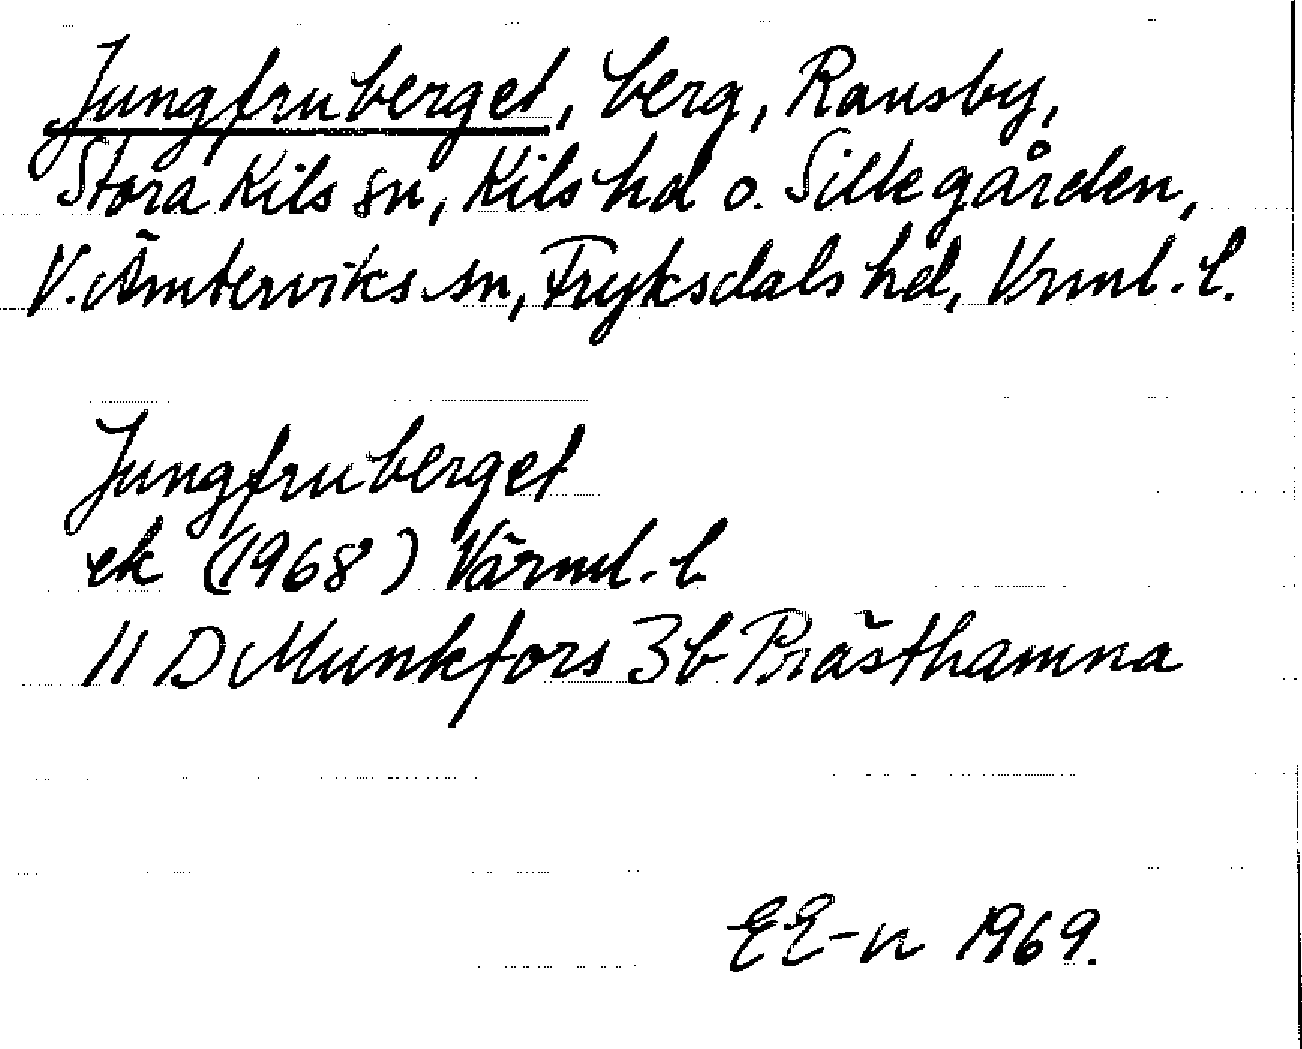 Jungfruberget, berg, Ransby,
Stora Kils sn, Kils hd o. Sillegården,
V. Ämterviks sn, Fryksdals hd, Vrml. l.
Jungfruberget
ek (1968) Värml. l.
11 D Munkfors 3b Prästhamna
EE-n 1969.